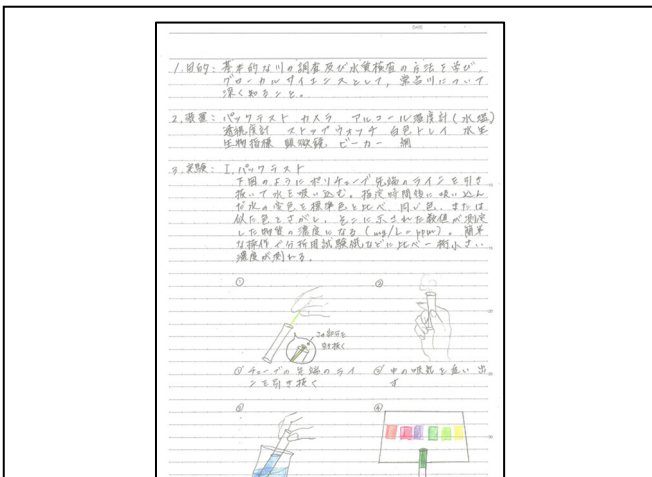 DATE
1.目的：基本的な川の調査及び水質検査の方法を学び、
グローカルサイエンスとして、常呂川について
深く知ること。
2.装置：パックテスト カメラ アルコール温度計(水温)
透視度計 ストップウォッチ 白色トレイ 水生
生物指標 顕微鏡 ビーカー 網
3.実験：I.パックテスト
下図のようにポリチューブ先端のラインを引き
抜いて水を吸い込む。指定時間後に吸い込ん
だ水の変色を標準色と比べ、同じ色、または
似た色をさがし、そこに示された数値が測定
した物質の濃度になる(mg/L=ppm)。簡単
な操作で分析用試験紙などに比べ一桁小さい
濃度が測れる。
① ②
この部分を
引き抜く
①チューブの先端のライ
ンを引き抜く
②中の吸気を追い出
す
③ ④